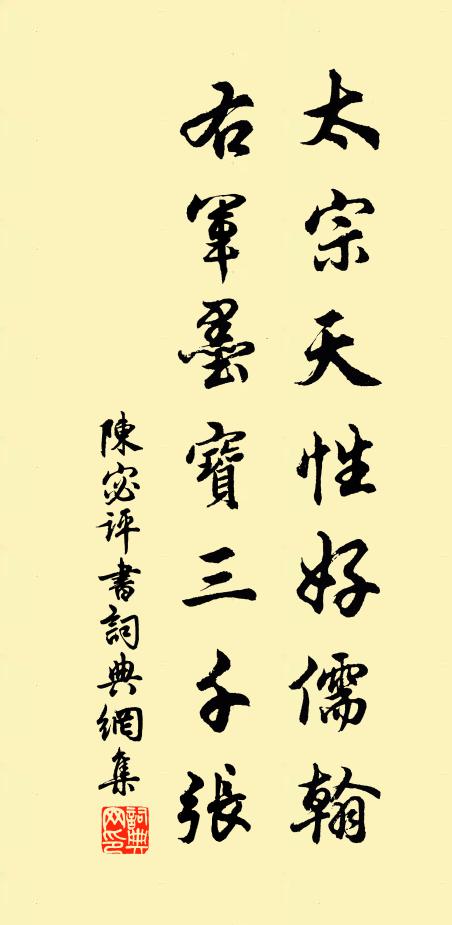 太宗天性好儒翰
右軍墨寶三千張
陳宓評書詞典網集
詞典网印